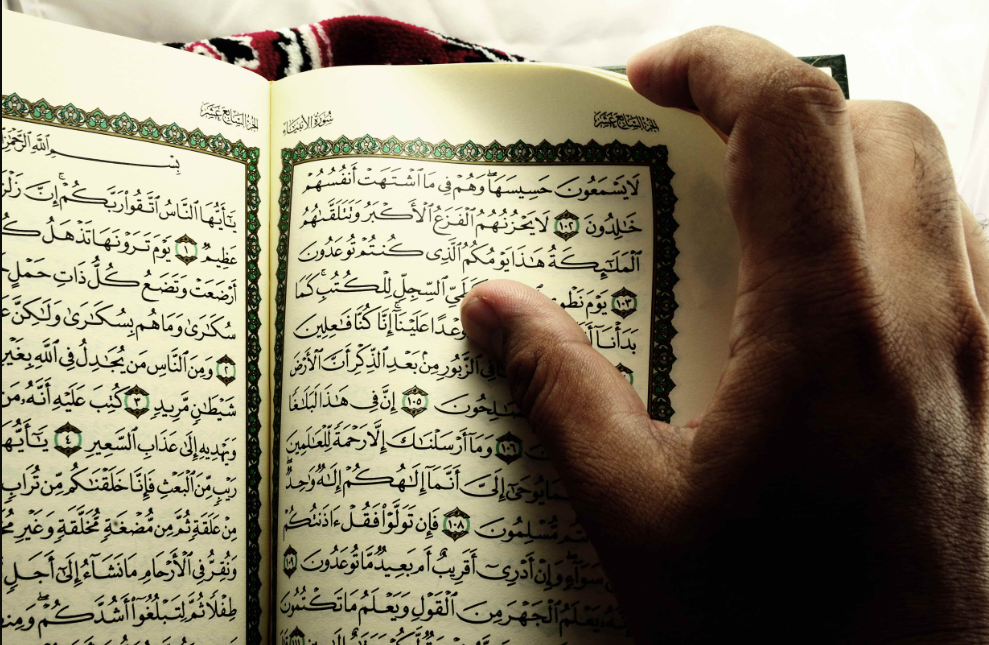 سُورَةُ الأَنْبِيَاءِ
الجُزْءُ السَّابِعَ عَشَرَ
لَا يَسْمَعُونَ حَسِيسَهَا ۖ وَهُمْ فِي مَا ٱشْتَهَتْ أَنفُسُهُمْ
خَٰلِدُونَ ١٠٢ لَا يَحْزُنُهُمُ ٱلْفَزَعُ ٱلْأَكْبَرُ وَتَتَلَقَّىٰهُمُ
ٱلْمَلَٰٓئِكَةُ هَٰذَا يَوْمُكُمُ ٱلَّذِى كُنتُمْ تُوعَدُونَ
١٠٣ يَوْمَ ٱلسِّجِلِّ لِلْكُتُبِ ۚ كَمَا
بَدَأْنَآ وَعْدًا عَلَيْنَآ ۚ إِنَّا كُنَّا فَٰعِلِينَ
فِى ٱلزَّبُورِ مِنۢ بَعْدِ ٱلذِّكْرِ أَنَّ ٱلْأَرْضَ
١٠٥ إِنَّ فِى هَٰذَا لَبَلَٰغًا
١٠٦ وَمَآ أَرْسَلْنَٰكَ إِلَّا رَحْمَةً لِّلْعَٰلَمِينَ
يُوحَىٰٓ إِلَىَّ أَنَّمَآ إِلَٰهُكُمْ إِلَٰهٌ وَٰحِدٌ ۖ
مُّسْلِمُونَ ١٠٨ فَإِن تَوَلَّوْا۟ فَقُلْ ءَاذَنتُكُمْ
سَوَآءٍ ۖ وَإِنْ أَدْرِىٓ أَقَرِيبٌ أَم بَعِيدٌ مَّا تُوعَدُونَ ١٠٩
يَعْلَمُ ٱلْجَهْرَ مِنَ ٱلْقَوْلِ وَيَعْلَمُ مَا تَكْتُمُونَ
الجُزْءُ السَّابِعَ عَشَرَ
بِسْمِ ٱللَّهِ ٱلرَّحْمَٰنِ
يَٰٓأَيُّهَا ٱلنَّاسُ ٱتَّقُوا۟ رَبَّكُمْ ۚ إِنَّ
عَظِيمٌ ١ يَوْمَ تَرَوْنَهَا تَذْهَلُ
أَرْضَعَتْ وَتَضَعُ كُلُّ ذَاتِ حَمْلٍ
سُكَٰرَىٰ وَمَا هُم بِسُكَٰرَىٰ وَلَٰكِنَّ
٢ وَمِنَ ٱلنَّاسِ مَن يُجَٰدِلُ فِى ٱللَّهِ بِغَيْرِ
شَيْطَٰنٍ مَّرِيدٍ ٣ كُتِبَ عَلَيْهِ أَنَّهُۥ مَن
وَيَهْدِيهِ إِلَىٰ عَذَابِ ٱلسَّعِيرِ ٤ يَٰٓأَيُّهَا
رَيْبٍ مِّنَ ٱلْبَعْثِ فَإِنَّا خَلَقْنَٰكُم مِّن تُرَابٍ
مِنْ عَلَقَةٍ ثُمَّ مِن مُّضْغَةٍ مُّخَلَّقَةٍ وَغَيْرِ
وَنُقِرُّ فِى ٱلْأَرْحَامِ مَا نَشَآءُ إِلَىٰٓ أَجَلٍ
طِفْلًا ثُمَّ لِتَبْلُغُوٓا۟ أَشُدَّكُمْ ۖ